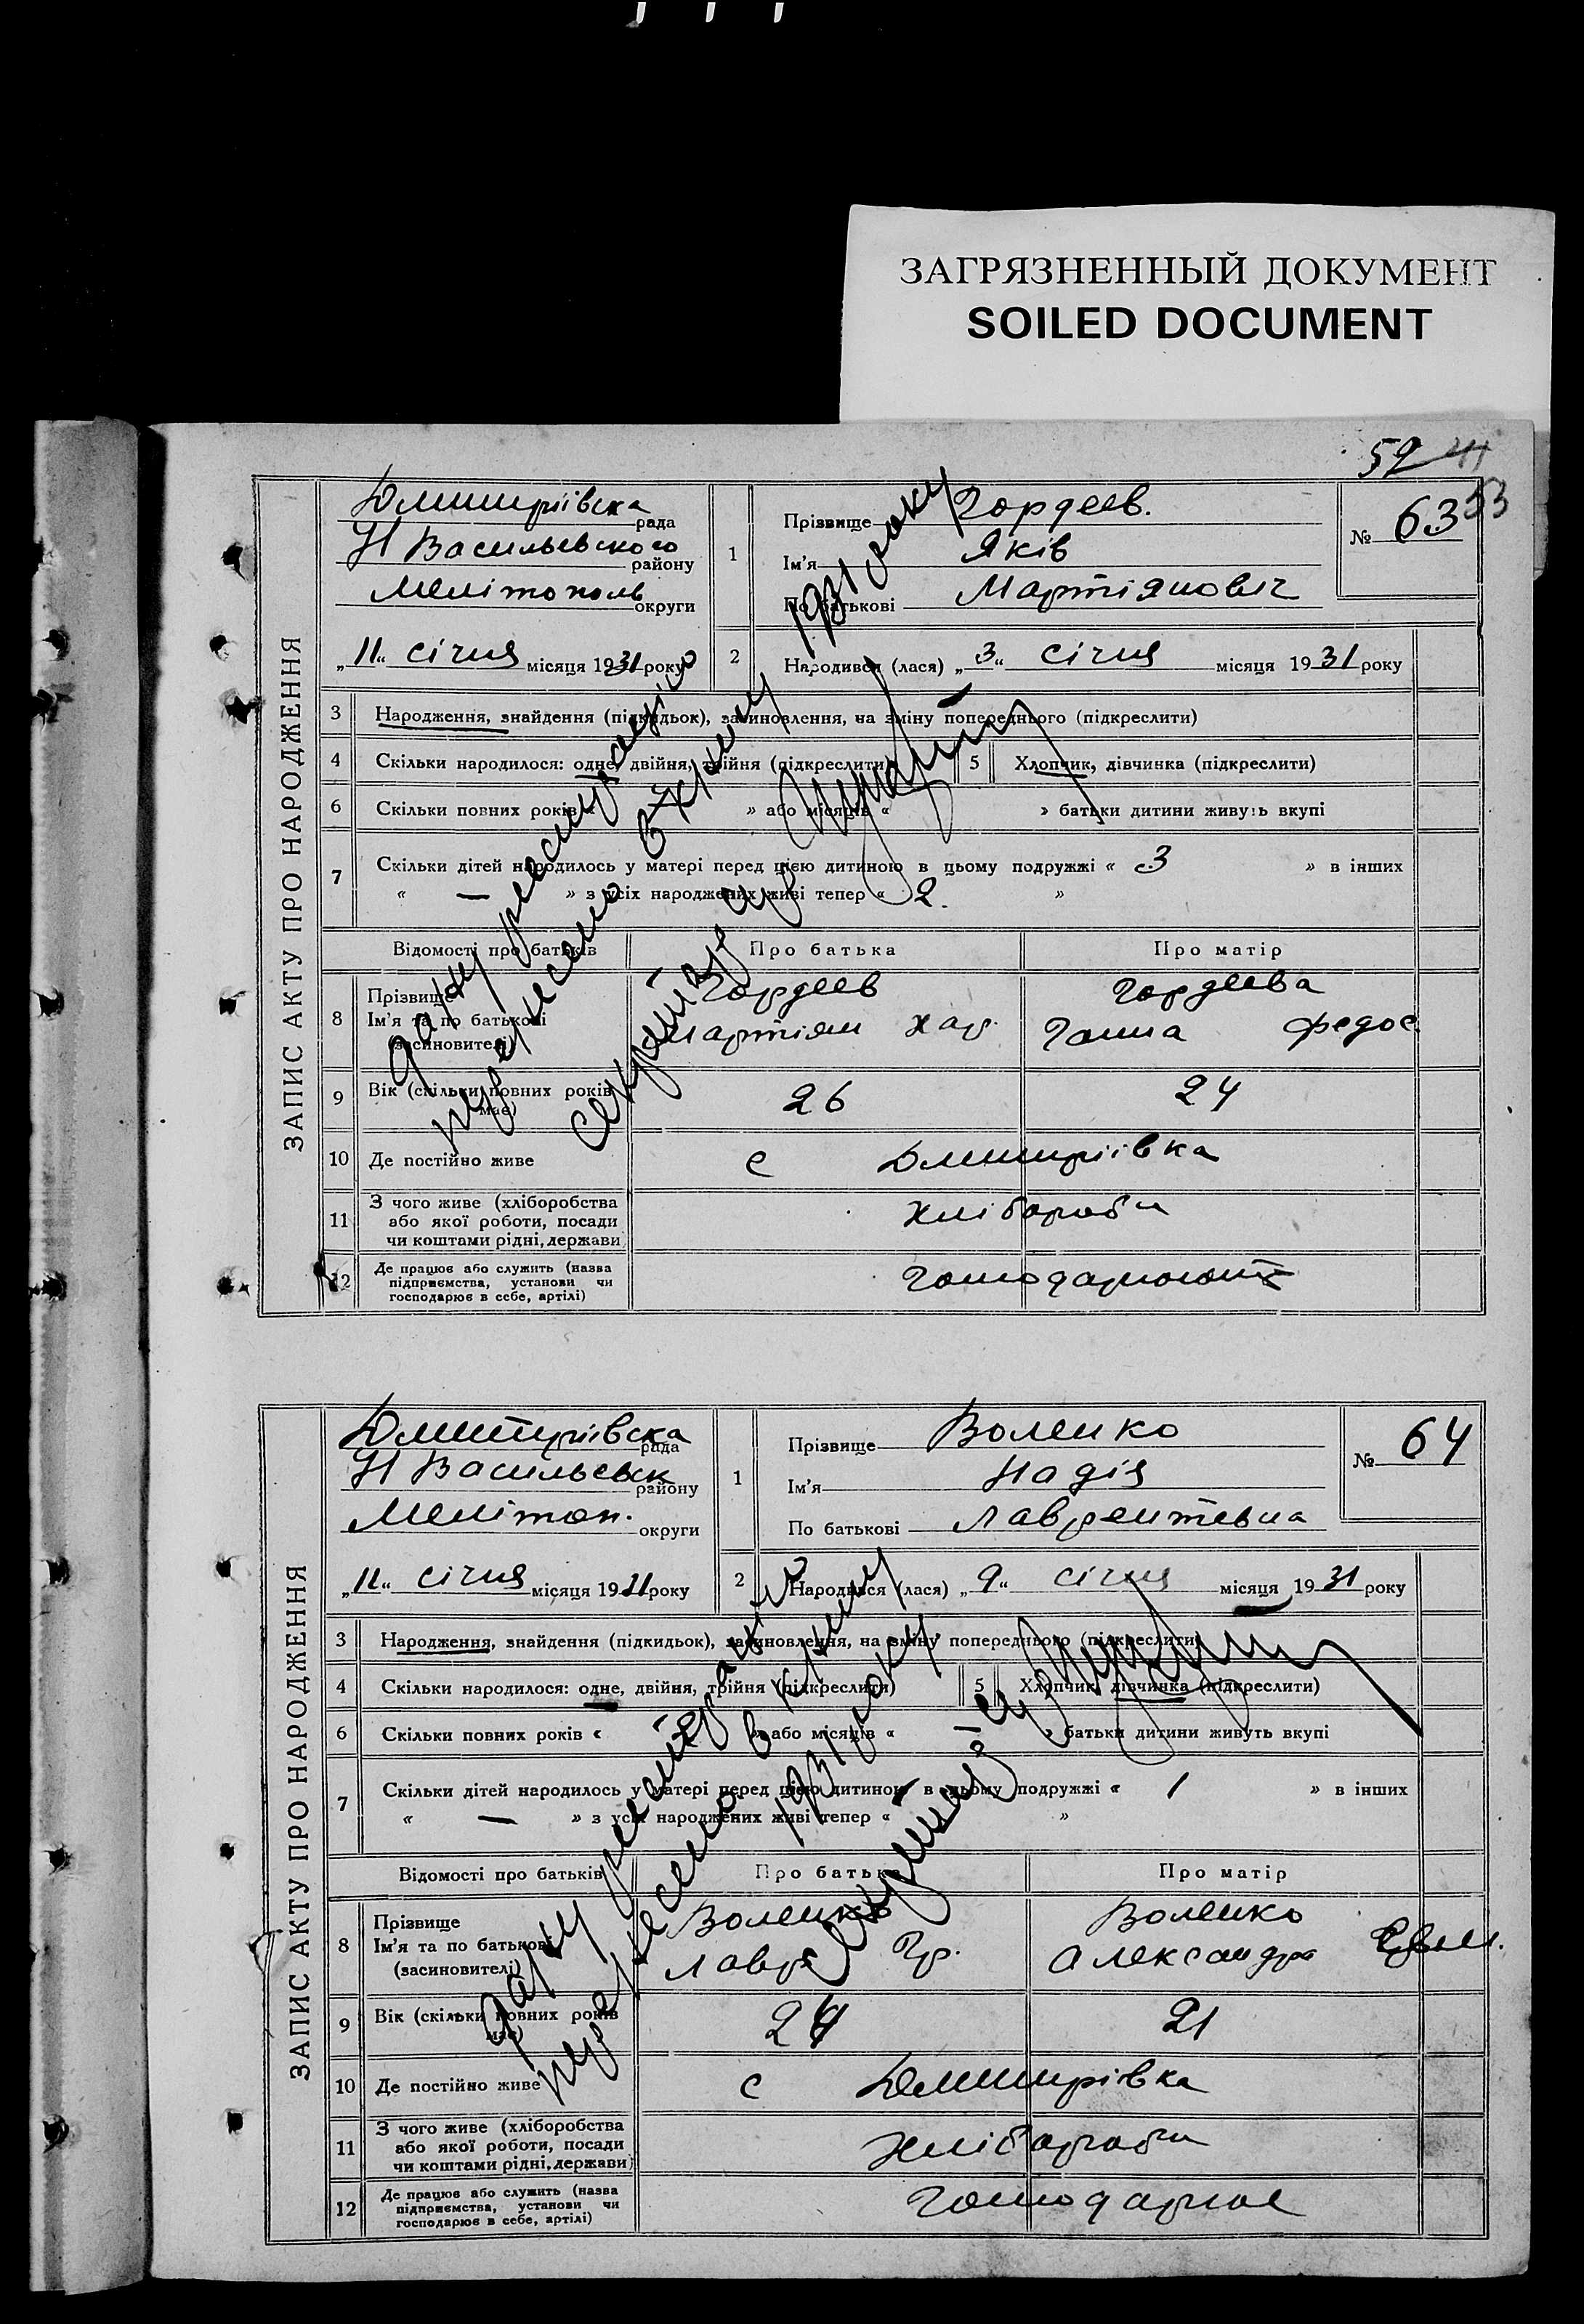 ЗАГРЯЗНЕННЫЙ ДОКУМЕНТ
SOILED DOCUMENT
52
53
ЗАПИС АКТУ ПРО НАРОДЖЕННЯ
Дмитріівська рада
Н Васильевского району
Мелітополь округи
„11“ січня місяця 1931 року
1 Прізвище Гордеев.
Ім'я Яків
По батькові Мартіянович
№ 63
2 Народився (лася) „3“ січня місяця 1931 року
3 Народження, знайдення (підкидьок), засиновлення, на зміну попереднього (підкреслити)
4 Скільки народилося: одне, двійня, трійня (підкреслити)
5 Хлопчик, дівчинка (підкреслити)
6 Скільки повних років « » або місяців « » батьки дитини живуть вкупі
7 Скільки дітей народилось у матері перед цією дитиною в цьому подружжі « 3 » в інших
« — » з усіх народжених живі тепер « 2. »
Відомості про батьків Про батька Про матір
8 Прізвище Гордеев Гордеева
Ім'я та по батькові Мартіян Хар. Ганна Федос
(засиновителі)
9 Вік (скільки повних років має) 26 24
10 Де постійно живе с Дмитріівка
11 З чого живе (хліборобства
або якої роботи, посади
чи коштами рідні, держави) хлібороби
12 Де працює або служить (назва
підприємства, установи чи
господарює в себе, артілі) господарюють
дану реєстрацію
перенесено в книгу
1931 року
секретар с/р
ЗАПИС АКТУ ПРО НАРОДЖЕННЯ
Дмитріівська рада
Н Васильевськ району
Мелітоп. округи
„11“ січня місяця 1931 року
1 Прізвище Воленко
Ім'я Надія
По батькові Лаврентевна
№ 64
2 Народився (лася) „9“ січня місяця 1931 року
3 Народження, знайдення (підкидьок), засиновлення, на зміну попереднього (підкреслити)
4 Скільки народилося: одне, двійня, трійня (підкреслити)
5 Хлопчик, дівчинка (підкреслити)
6 Скільки повних років « 2 » або місяців « » батьки дитини живуть вкупі
7 Скільки дітей народилось у матері перед цією дитиною в цьому подружжі « 1 » в інших
« — » з усіх народжених живі тепер « »
Відомості про батьків Про батька Про матір
8 Прізвище Воленко Воленко
Ім'я та по батькові Лавре Гр. Александра
(засиновителі)
9 Вік (скільки повних років має) 24 21
10 Де постійно живе с Дмитрівка
11 З чого живе (хліборобства
або якої роботи, посади
чи коштами рідні, держави) хлібороби
12 Де працює або служить (назва
підприємства, установи чи
господарює в себе, артілі) господарює
дану реєстрацію
перенесено в книгу
1931 року
секретар с/р